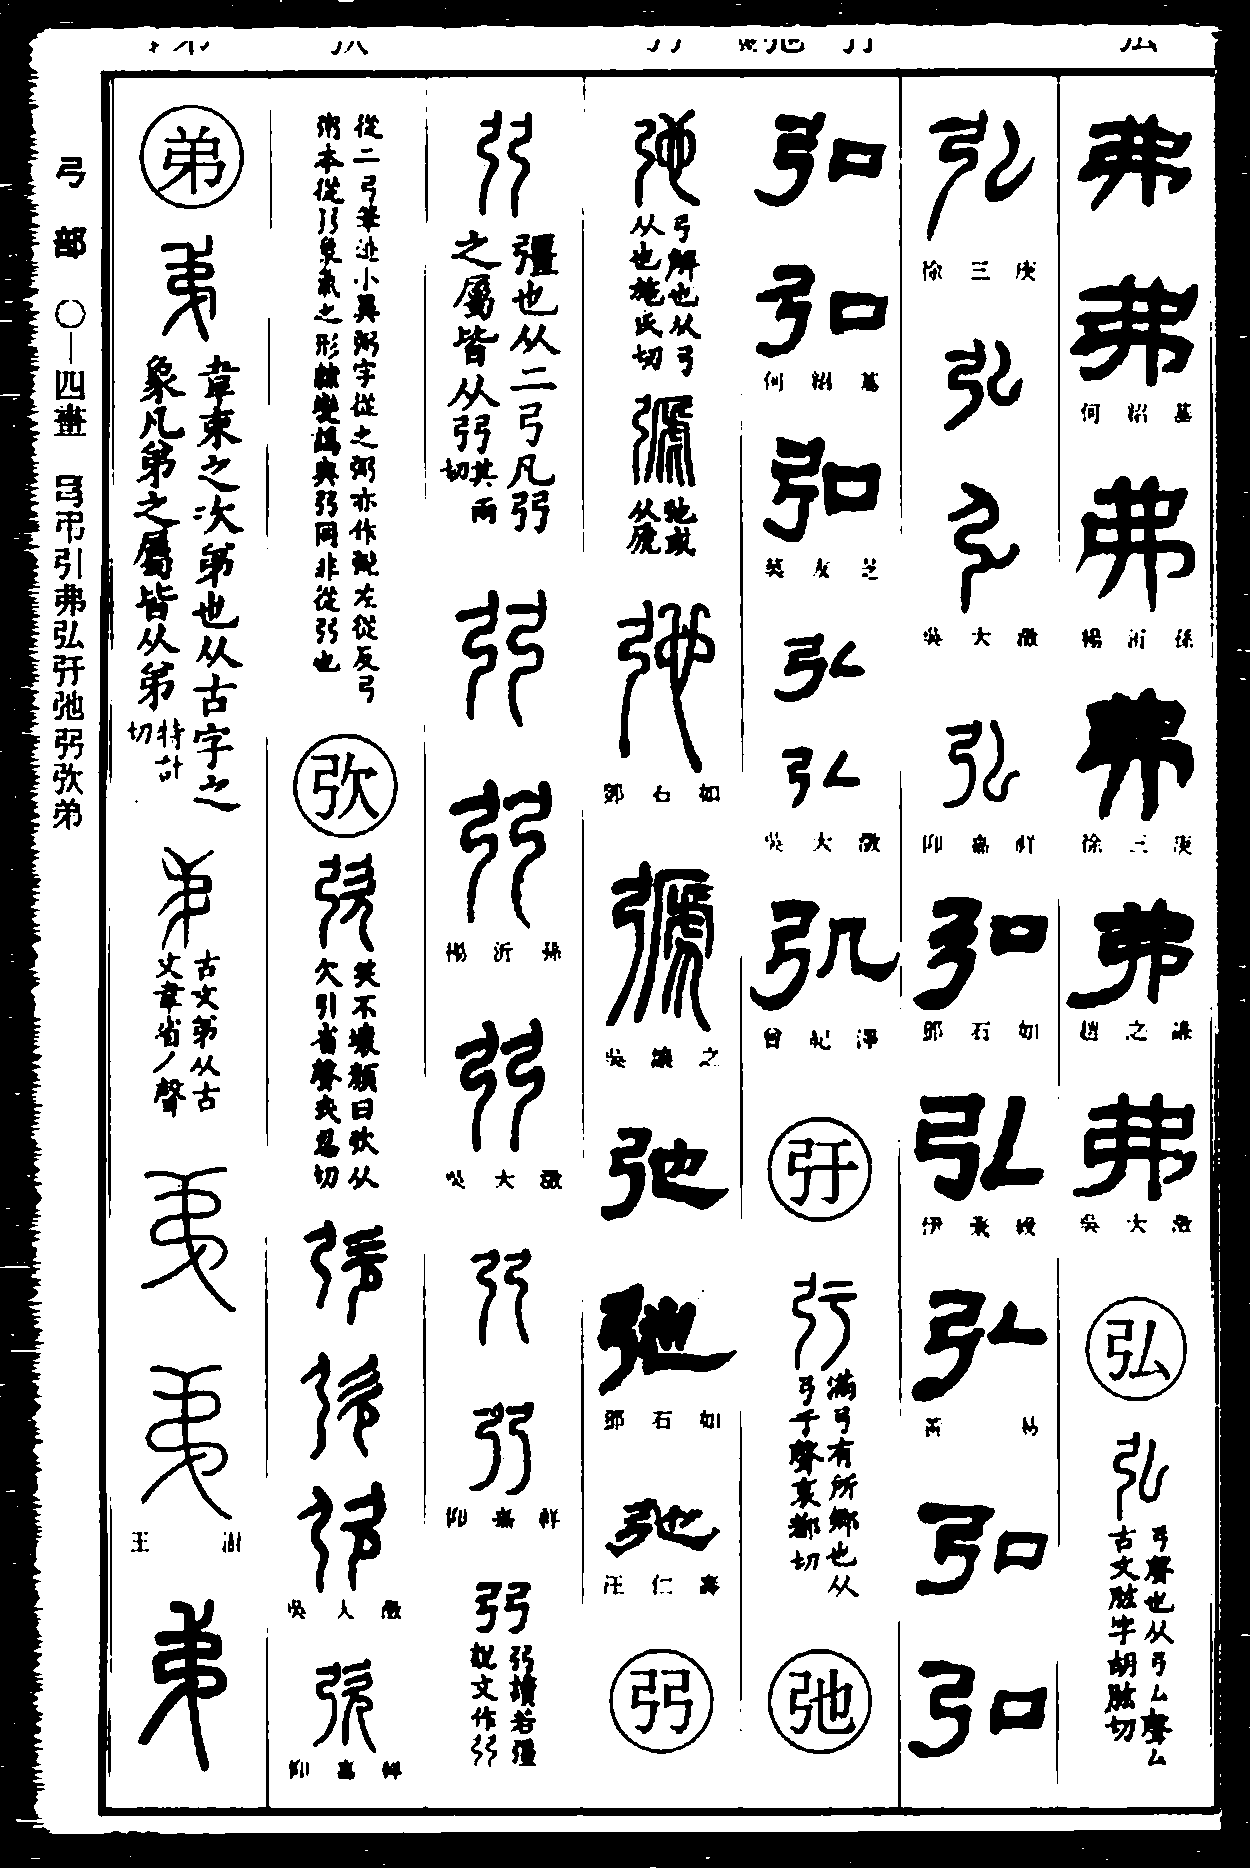 弗
弗
何紹基
弗
楊沂孫
弗
徐三庚
弗
趙之謙
弗
吳大澂
弘
弘
弓聲也从弓厶聲厶
古文肱字胡肱切
弘
徐三庚
弘
弘
吳大澂
弘
仰嘉祥
弘
鄧石如
弘
伊秉綬
弘
弘
弘
弘
弘
何紹基
弘
莫友芝
弘
弘
吳大澂
弘
曾紀澤
弙
弙
滿弓有所鄉也从
弓于聲哀都切
弛
弛
弓解也从弓
从也施氏切
弛或
从虒
弛
鄧石如
吳讓之
弛
弛
鄧石如
弛
汪仁壽
弜
弜
彊也从二弓凡弜
之屬皆从弜其兩
切
弜
弜
楊沂孫
弜
吳大澂
弜
弜
仰嘉祥
弜
弜讀若彊
說文作弜
從二弓筆迹小異粥字從之粥亦作䰞左從反弓
粥本從弜象氣之形隸變譌與弜同非從弜也
弞
弞
笑不壞顏曰弞从
欠引省聲矢忍切
弞
弞
弞
吳大澂
弞
仰嘉祥
弟
弟
韋束之次弟也从古字之
象凡弟之屬皆从弟特計
切
古文弟从古
文韋省丿聲
弟
弟
王澍
弟
弓部 〇—四畫 弓弔引弗弘弙弛弜弞弟